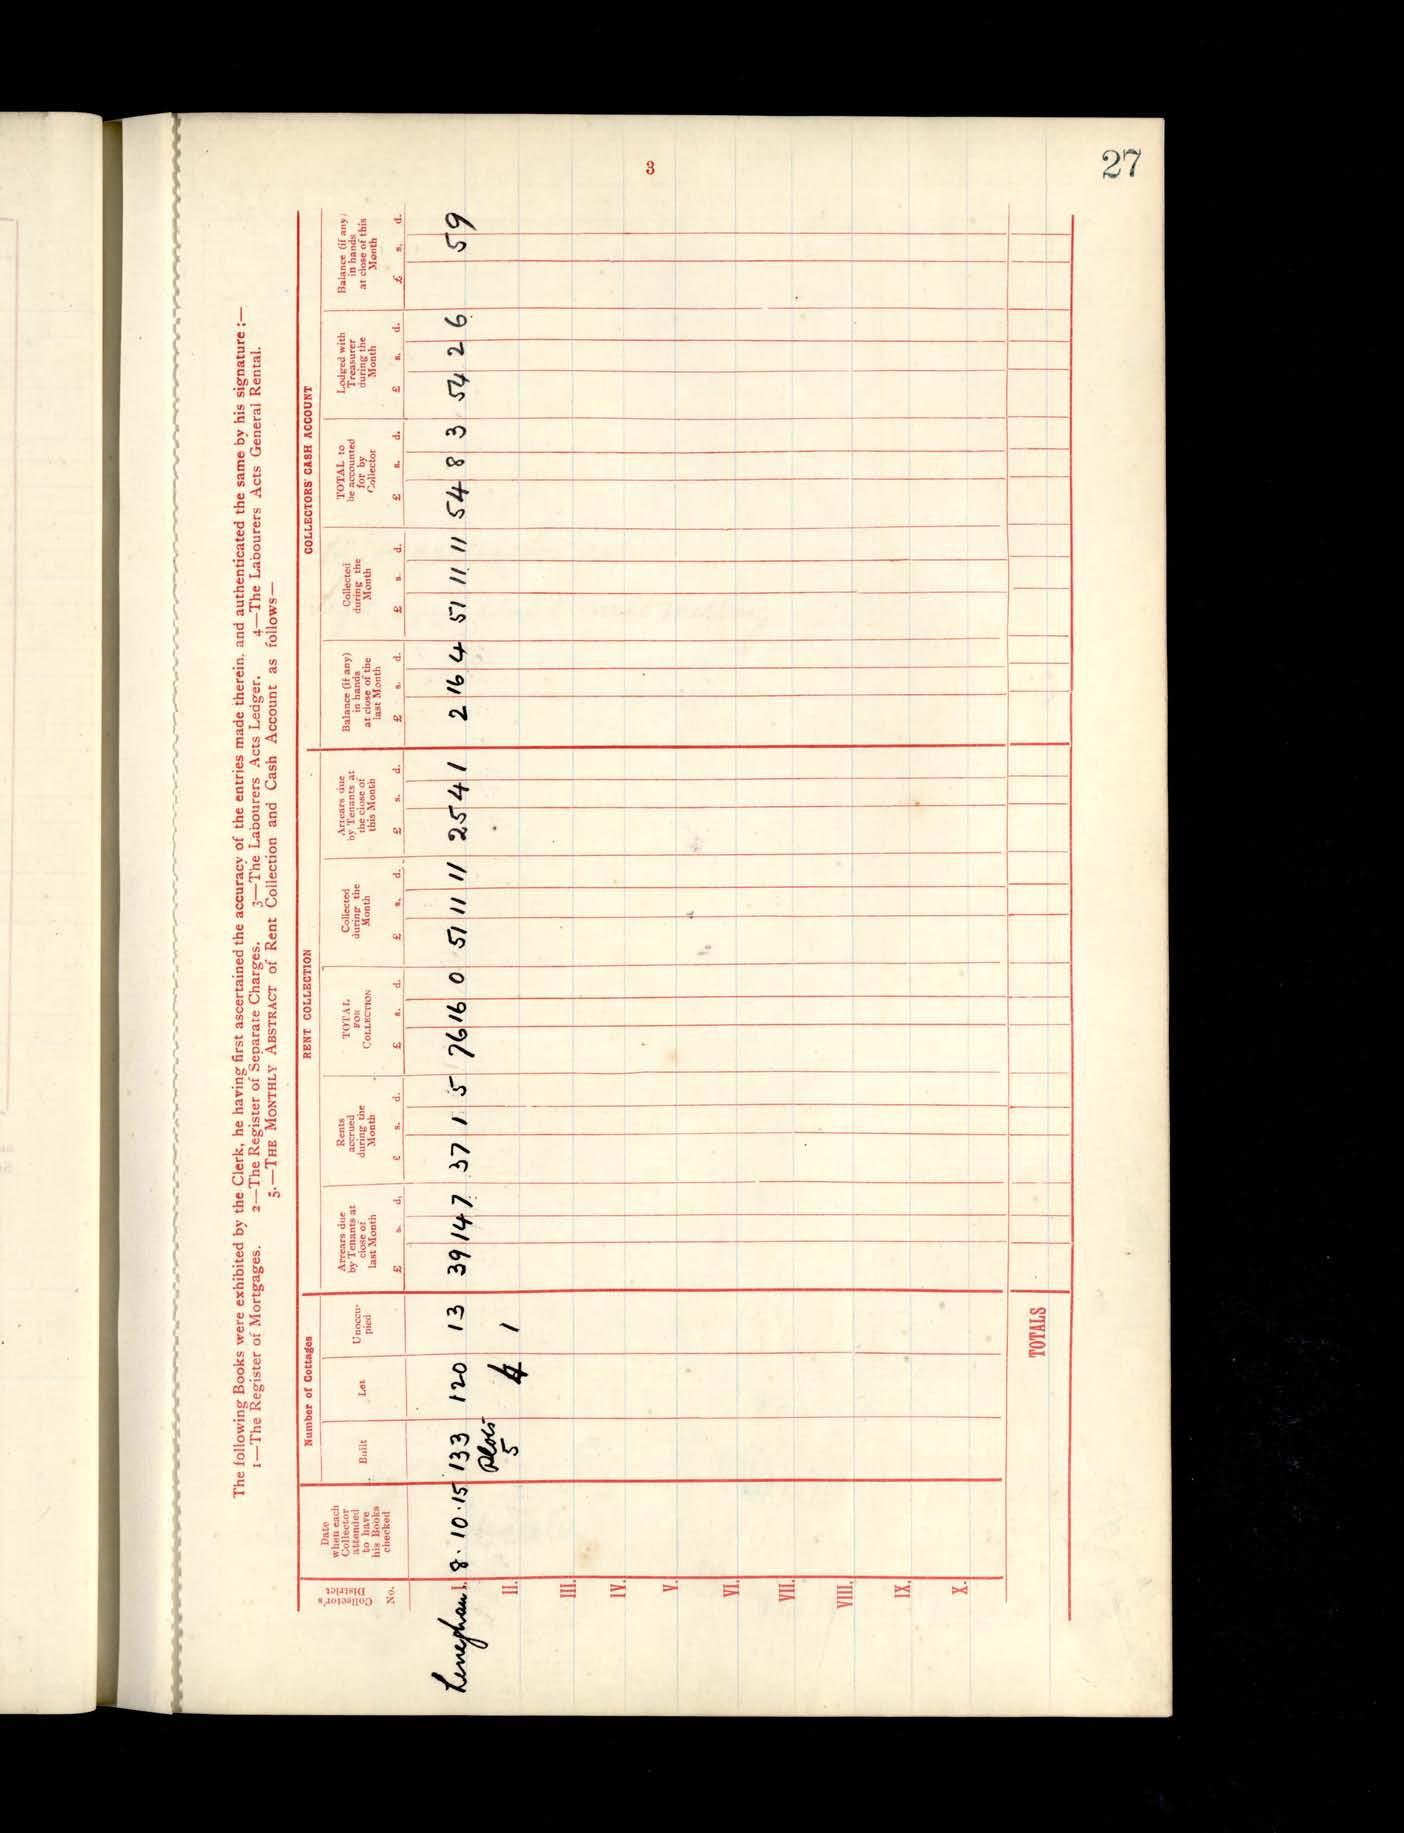 27
3
The following Books were exhibited by the Clerk, he having first ascertained the accuracy of the entries made therein, and authenticated the same by his signature :—
1—The Register of Mortgages. 2—The Register of Separate Charges. 3—The Labourers Acts Ledger. 4—The Labourers Acts General Rental.
5.—THE MONTHLY ABSTRACT of Rent Collection and Cash Account as follows—
Number of Cottages RENT COLLECTION COLLECTORS' CASH ACCOUNT
Collector's District
No.
Date when each Collector attended to have his Books checked
Built
Let
Unoccu-pied
Arrears due by Tenants at close of last Month
£ s. d.
Rents accrued during the Month
£ s. d.
TOTAL FOR COLLECTION
£ s. d.
Collected during the Month
£ s. d.
Arrears due by Tenants at the close of this Month
£ s. d.
Balance (if any) in hands at close of the last Month
£ s. d.
Collected during the Month
£ s. d.
TOTAL to be accounted for by Collector
£ s. d.
Lodged with Treasurer during the Month
£ s. d.
Balance (if any) in hands at close of this Month
£ s. d.
Leneghan I. 8.10.15 133 120 13 39 14 7 37 1 5 76 16 0 51 11 11 25 4 1 2 16 4 51 11 11 54 8 3 54 2 6 5 9
Plots
II. 5 4 1
III.
IV.
V.
VI.
VII.
VIII.
IX.
X.
TOTALS